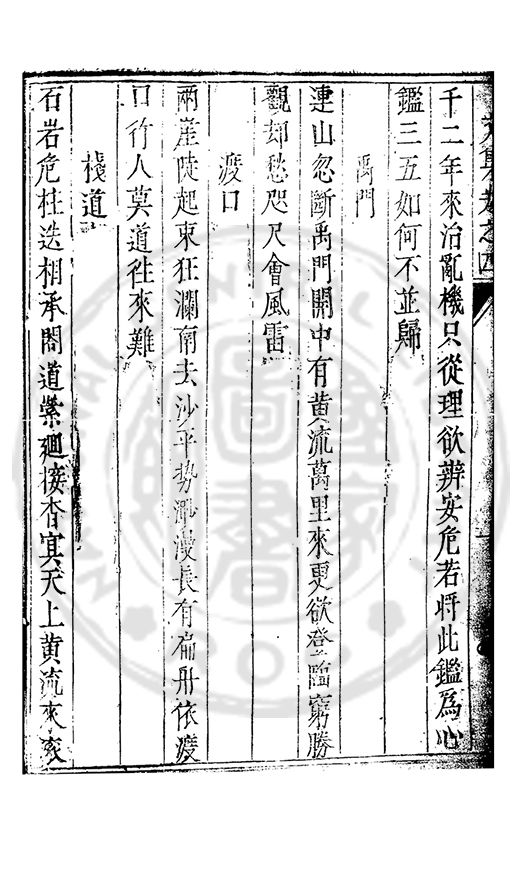 文集卷之四
千二年來治亂機只從理欲辨安危若将此鑑為心
鑑三五如何不並歸
禹門
連山忽斷禹門開中有黄流萬里來更欲登臨窮勝
觀却愁咫尺會風雷
渡口
兩崖陡起束狂瀾南去沙平勢漫長有扁舟依渡
口行人莫道徃來難
棧道
石岩危柱迭相承閣道縈廻接杳冥天上黄流來